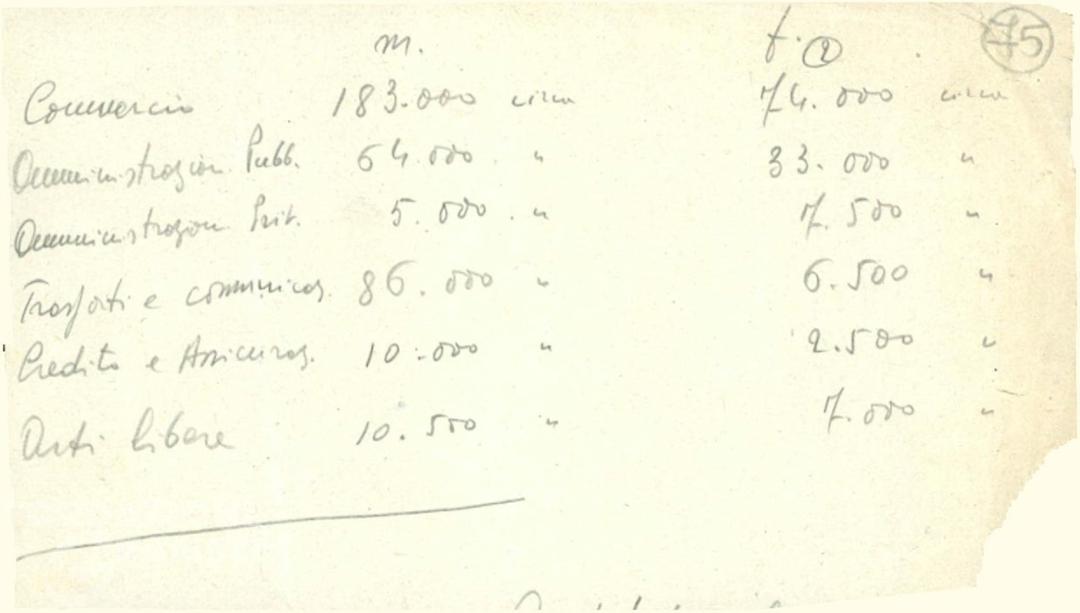 m. f. ② 75
Commercio 183.000 circa 74.000 circa
Amministrazion. Pubb. 64.000 " 33.000 "
Amministrazion. Priv. 5.000 " 7.500 "
Trasporti e comunicaz. 86.000 " 6.500 "
Credito e Assicuraz. 10.000 " 2.500 "
Arti libere 10.500 " 7.000 "